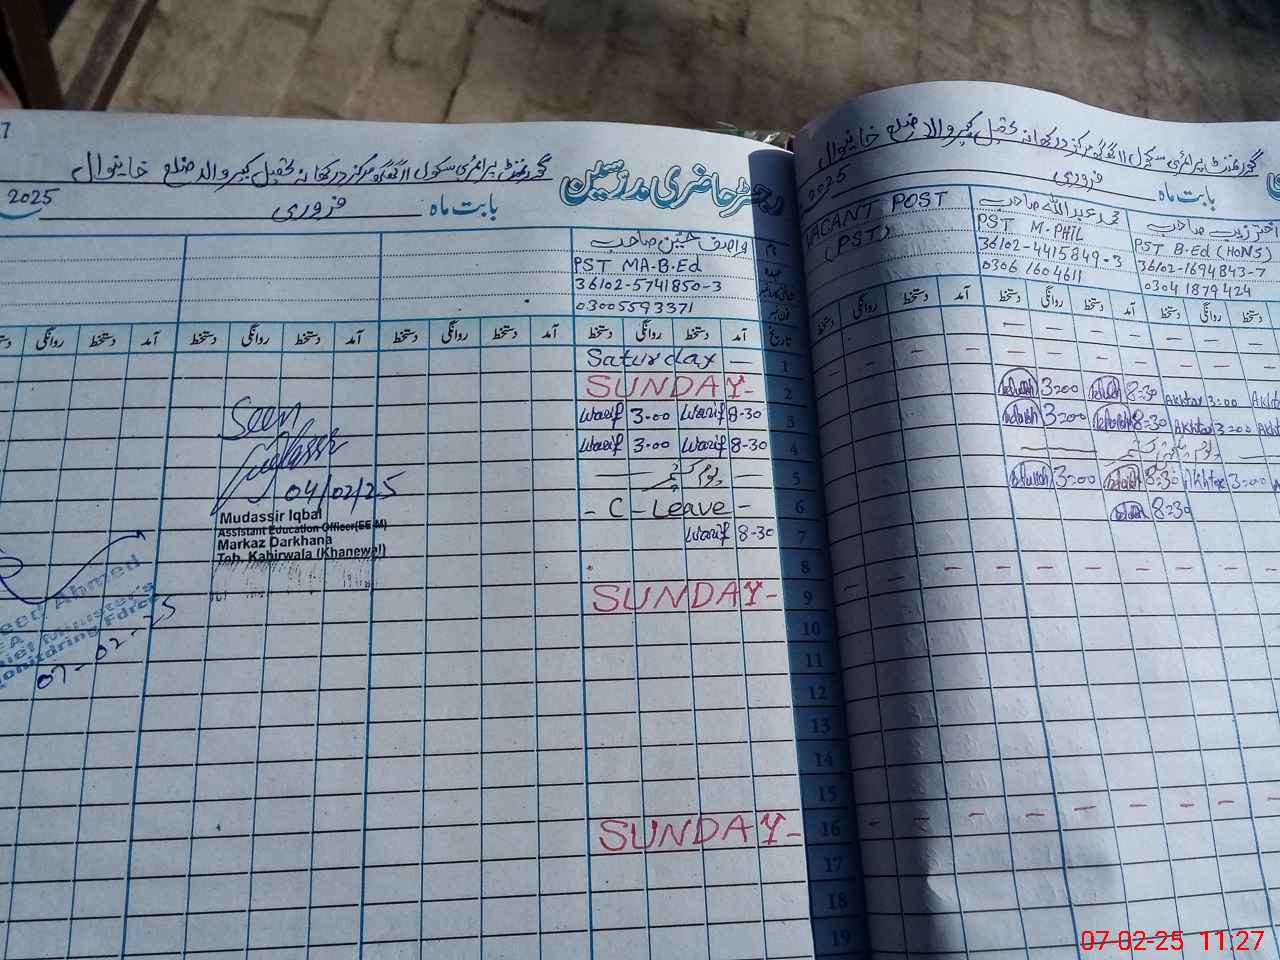 رجسٹر حاضری مدرسین
گورنمنٹ پرائمری سکول مرکز درکھانہ تحصیل کبیروالہ ضلع خانیوال
بابت ماہ فروری 2025
نام
واصف حسین صاحب
PST MA.B.Ed
36102-5741850-3
03005593371
تاریخ آمد دستخط روانگی دستخط آمد دستخط روانگی دستخط آمد دستخط روانگی دستخط آمد دستخط روانگی
1 Saturday —
2 SUNDAY-
3 8-30 Wasif 3-00 Wasif
4 8-30 Wasif 3-00 Wasif
5
6 - C - Leave -
7 8-30 Wasif
8
9 SUNDAY-
10
11
12
13
14
15
16 SUNDAY-
17
18
19
Seen
04/02/25
Mudassir Iqbal
Assistant Education Officer(EE-M)
Markaz Darkhana
Teh. Kabirwala (Khanewal)
Ahmed
Minister's
Monitoring Force
07-02-25
گورنمنٹ پرائمری سکول مرکز درکھانہ تحصیل کبیروالہ ضلع خانیوال
بابت ماہ فروری 2025
اختر زیب صاحب
PST B.Ed (HONS)
36102-1694843-7
0304 1879424
محمد عبداللہ صاحب
PST M-PHIL
36102-4415849-3
0306 1604611
VACANT POST
(PST)
دستخط روانگی دستخط آمد دستخط روانگی دستخط آمد دستخط روانگی دستخط
Akhtar 3:00 8-30 3-00
Akhtar 3-00 8-30 3-00
Akhtar 3-00 8-30 3-00
8-30
07-02-25 11:27